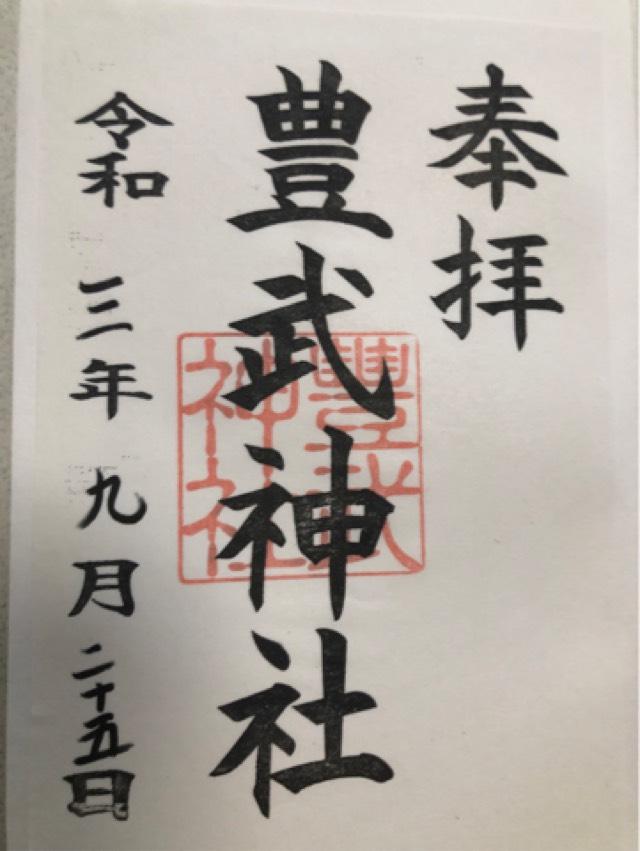 奉拝
豊武神社
豐武
神社
令和三年九月二十五日